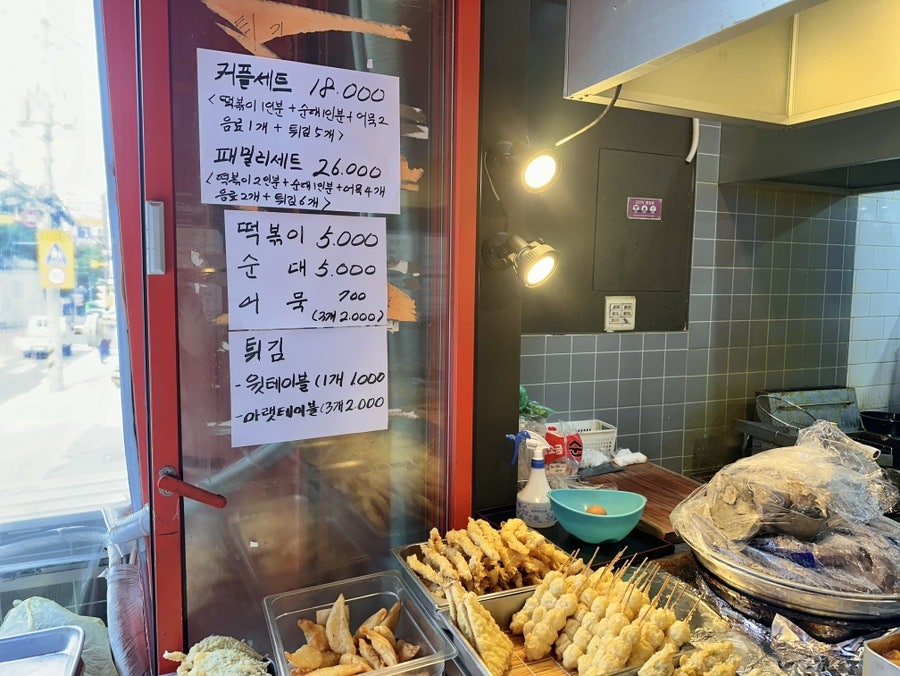 튀기
커플세트 18.000
< 떡볶이1인분 + 순대1인분 + 어묵2
음료1개 + 튀김5개 >
패밀리세트 26.000
( 떡볶이2인분 + 순대1인분 + 어묵4개
음료2개 + 튀김6개 >
떡볶이 5.000
순대 5.000
어묵 700
(3개 2.000)
튀김
-윗테이블 (1개 1.000
-아랫테이블 (3개 2.000